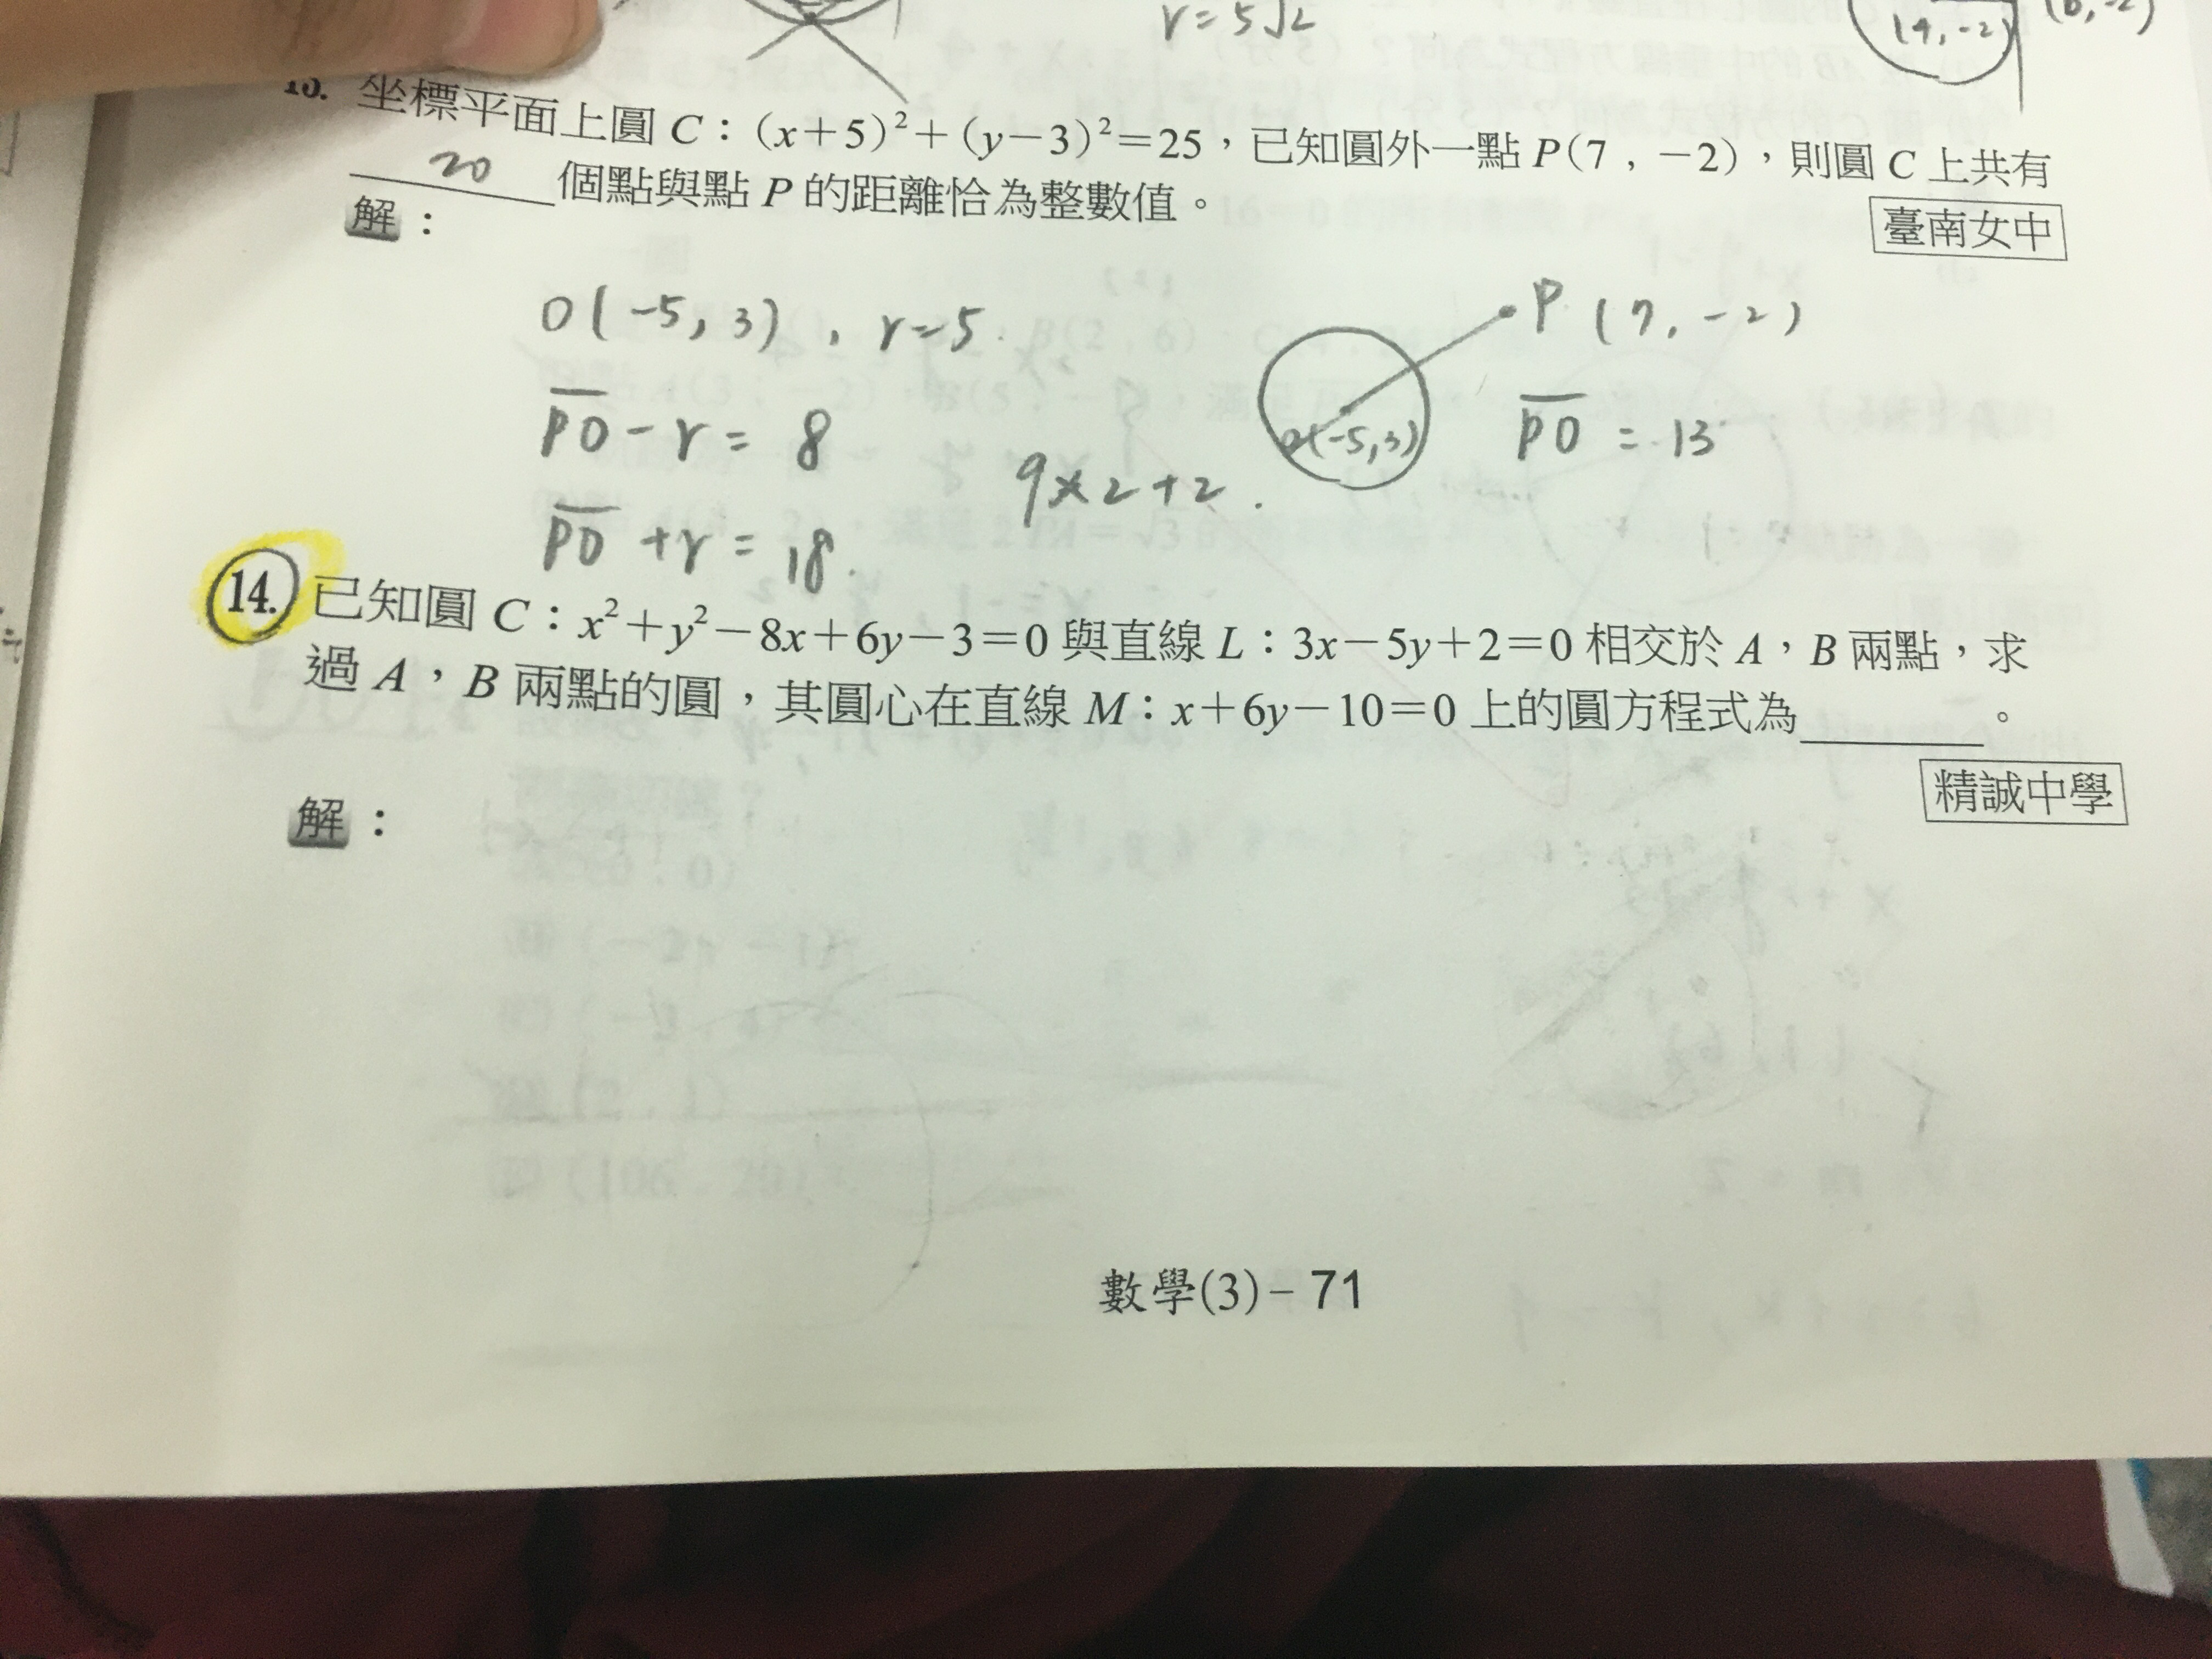 r=5√2
(4,-2)
(6,-2)
坐標平面上圓 C：(x+5)²+(y-3)²=25，已知圓外一點 P(7，-2)，則圓 C 上共有
20 個點與點 P 的距離恰為整數值。
臺南女中
解：
O(-5,3), r=5.
P(7,-2)
O(-5,3)
PO - r = 8
PO = 13
9×2+2.
PO + r = 18.
14. 已知圓 C：x²+y²-8x+6y-3=0 與直線 L：3x-5y+2=0 相交於 A，B 兩點，求
過 A，B 兩點的圓，其圓心在直線 M：x+6y-10=0 上的圓方程式為＿＿＿＿。
精誠中學
解：
數學(3)－71